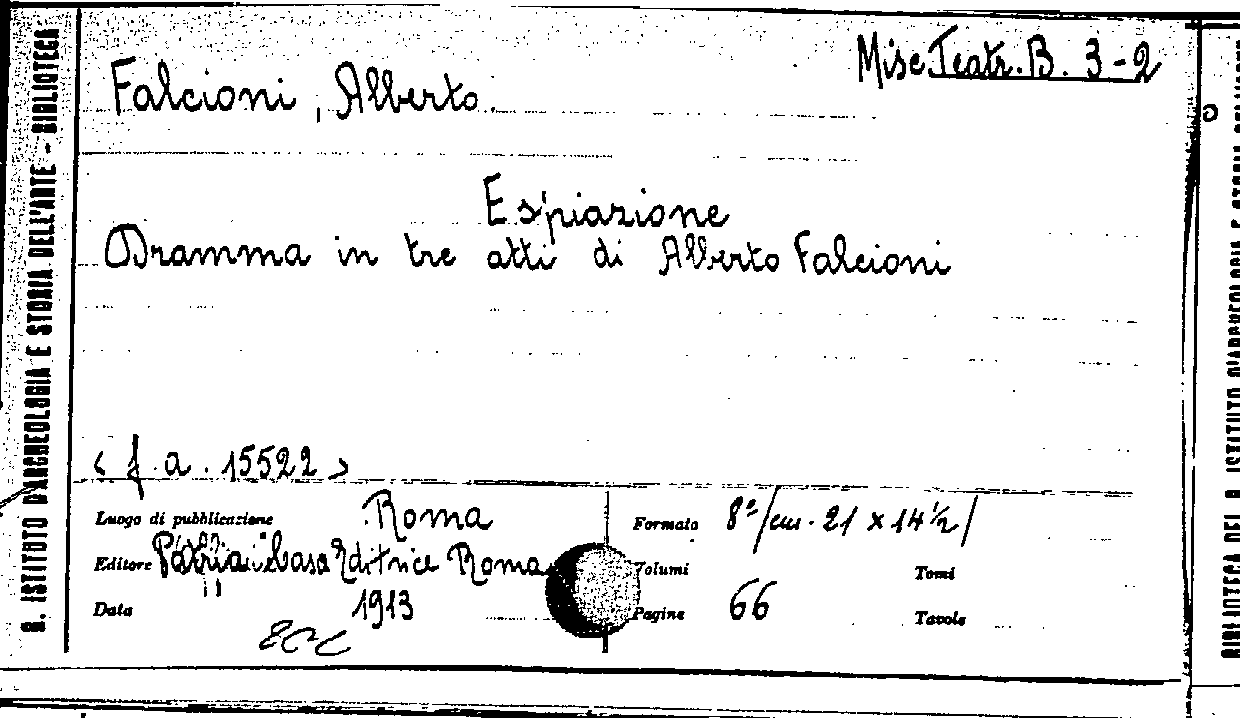 Misc. Teatr. B. 3-2
Falcioni, Alberto.
Espiazione
Dramma in tre atti di Alberto Falcioni
< f. a. 15522 >
Luogo di pubblicazione Roma
Editore "Patria" Casa Editrice Roma
Data 1913
Formato 8º/cm. 21 x 14 ½/
Volumi
Tomi
Pagine 66
Tavole
R. ISTITUTO D'ARCHEOLOGIA E STORIA DELL'ARTE - BIBLIOTECA
BIBLIOTECA DEL R. ISTITUTO D'ARCHEOLOGIA E STORIA